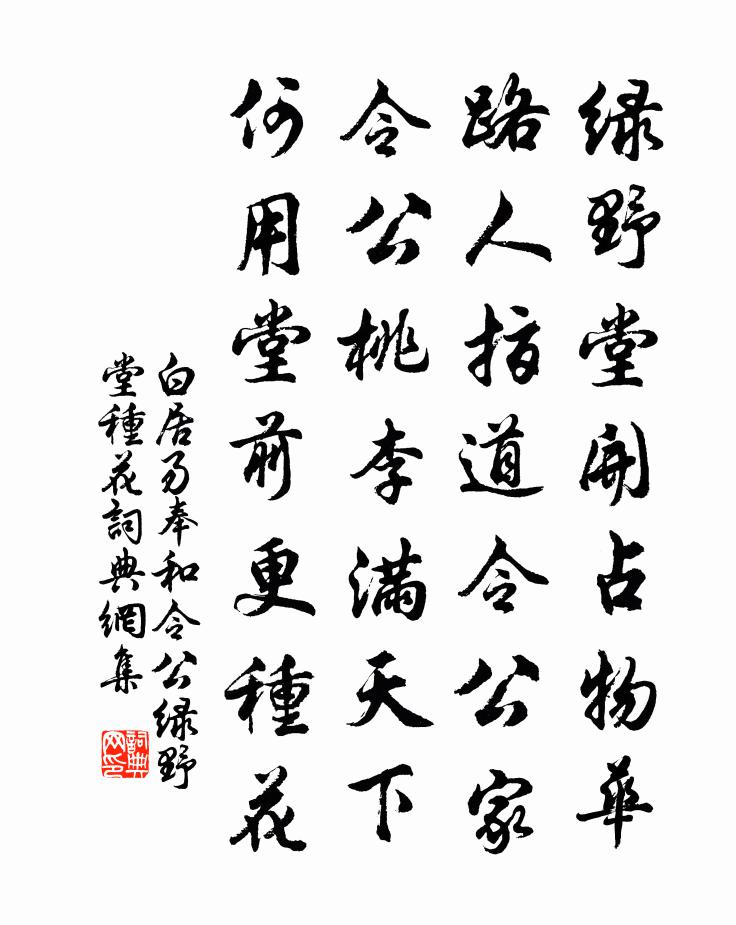 绿野堂開占物華
路人指道令公家
令公桃李滿天下
何用堂前更種花
白居易奉和令公绿野
堂種花詞典網集
詞典网印